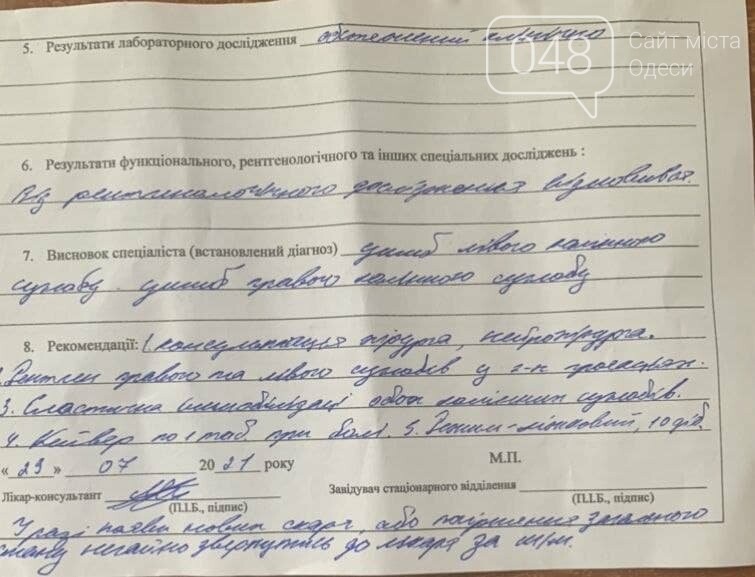 5. Результати лабораторного дослідження обстежений клінічно
048 Сайт міста
Одеси
6. Результати функціонального, рентгенологічного та інших спеціальних досліджень :
Від рентгенологічного дослідження відмовився.
7. Висновок спеціаліста (встановлений діагноз) удиб лівого колінного
суглобу. удиб правого колінного суглобу
8. Рекомендації: 1. консультація хірурга, нейрохірурга.
2. Рентген правого та лівого суглобів у 2-х проекціях.
3. Еластична іммобілізація обох колінних суглобів.
4. Кейвер по 1 таб. при болі. 5. Режим - ліжковий, 10 діб
« 29 » 07 2021 року М.П.
Лікар-консультант Завідувач стаціонарного відділення
(П.І.Б., підпис) (П.І.Б., підпис)
У разі появи нових скарг, або погіршення загального
стану негайно звернутись до лікаря за м/п.